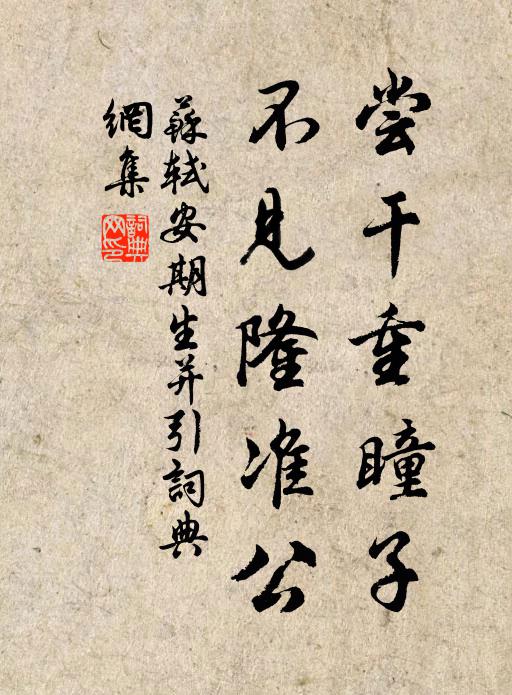 尝干重瞳子
不见隆准公
蘇軾安期生并引詞典
網集
詞典
网印